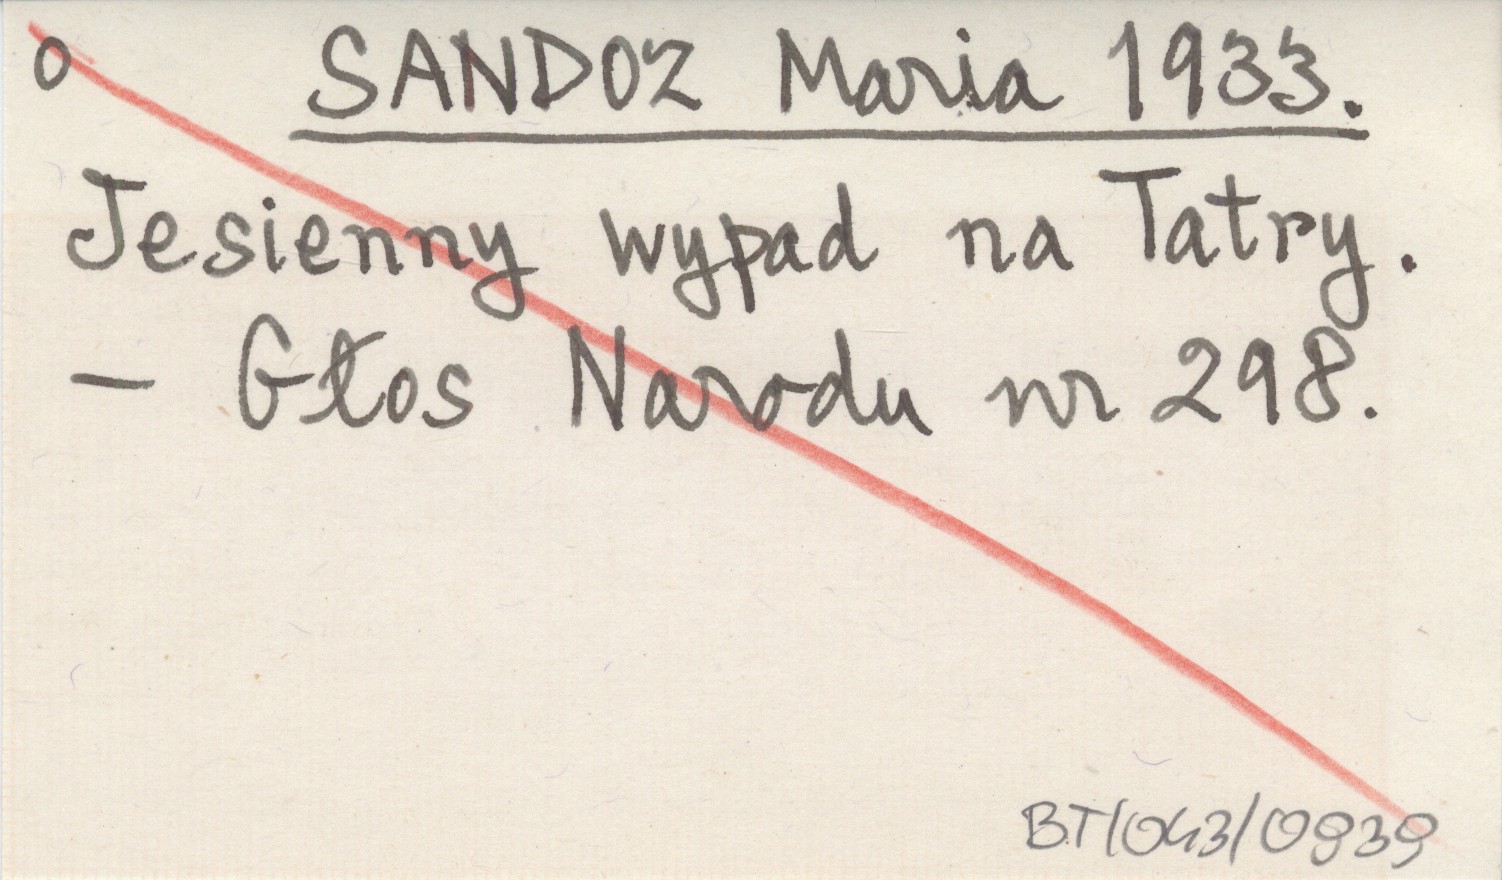 o SANDOZ Maria 1933.
Jesienny wypad na Tatry.
— Głos Narodu nr 298.
BT/043/0939